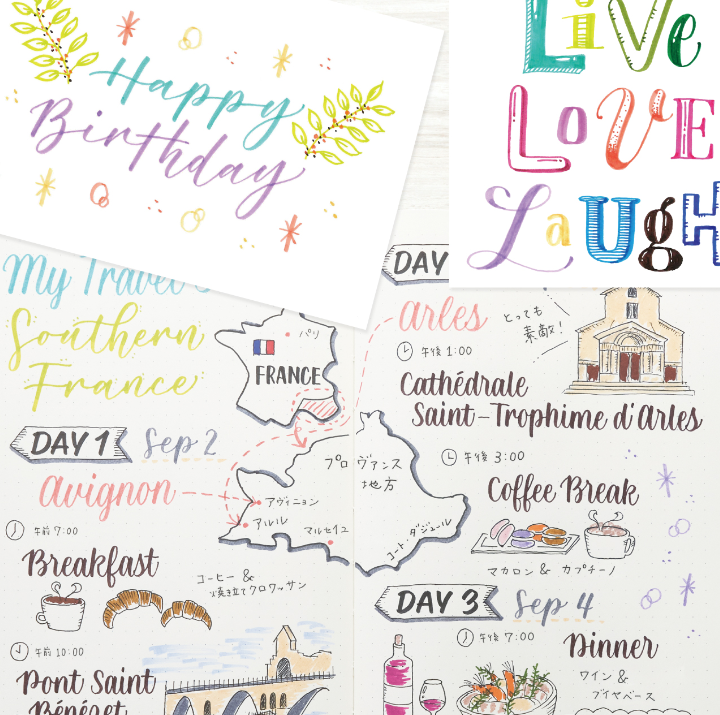 Happy
Birthday
Live
LoVE
LaugH
My Travel
Southern
France
パリ
FRANCE
DAY 1 Sep 2
avignon
プロヴァンス
地方
アヴィニョン
アルル
マルセイユ
コート・ダジュール
午前 7:00
Breakfast
コーヒー &
焼き立てクロワッサン
午前 10:00
Pont Saint
Bénézet
DAY
arles
とっても
素敵!
午後 1:00
Cathédrale
Saint-Trophime d'Arles
午後 3:00
Coffee Break
マカロン & カプチーノ
DAY 3 Sep 4
午後 7:00
Dinner
ワイン &
ブイヤベース